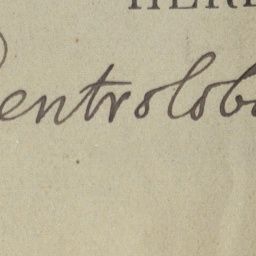 HERB
Centrolobi